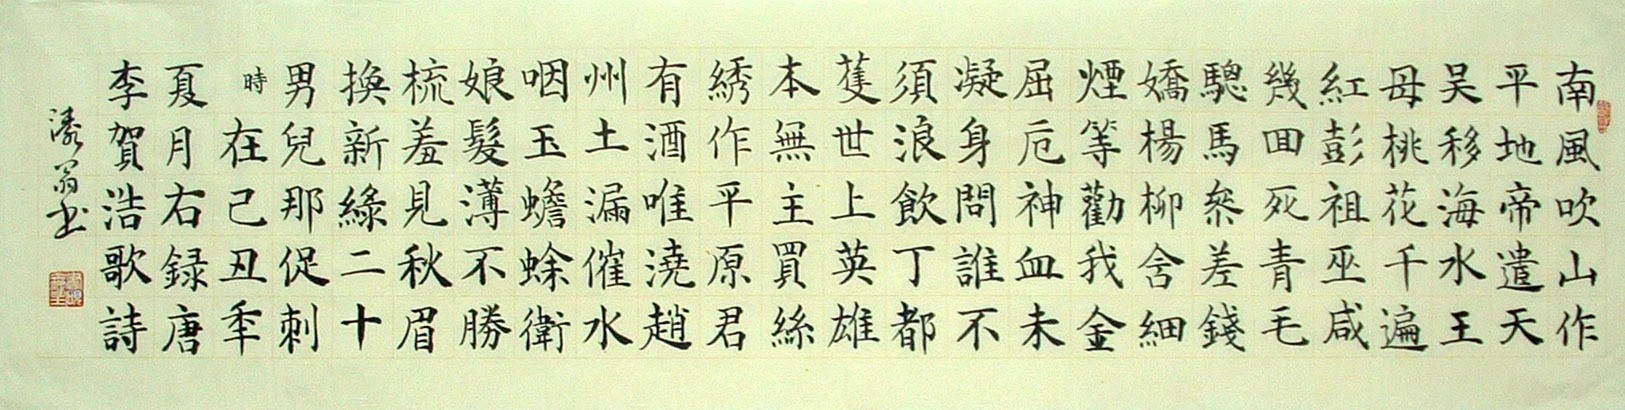 南風吹山作
平地帝遣天
吴移海水王
母桃花千遍
紅彭祖巫咸
幾回死青毛
驄馬叅差錢
嬌楊柳含細
煙箏勸我金
屈卮神血未
凝身問誰不
須浪飲丁都
䕶世上英雄
本無主買絲
綉作平原君
有酒唯澆趙
州土漏催水
咽玉蟾蜍衛
娘髮薄不勝
梳羞見秋眉
換新綠二十
男兒那促刺
時在己丑年
夏月右録唐
李賀浩歌詩
翁书